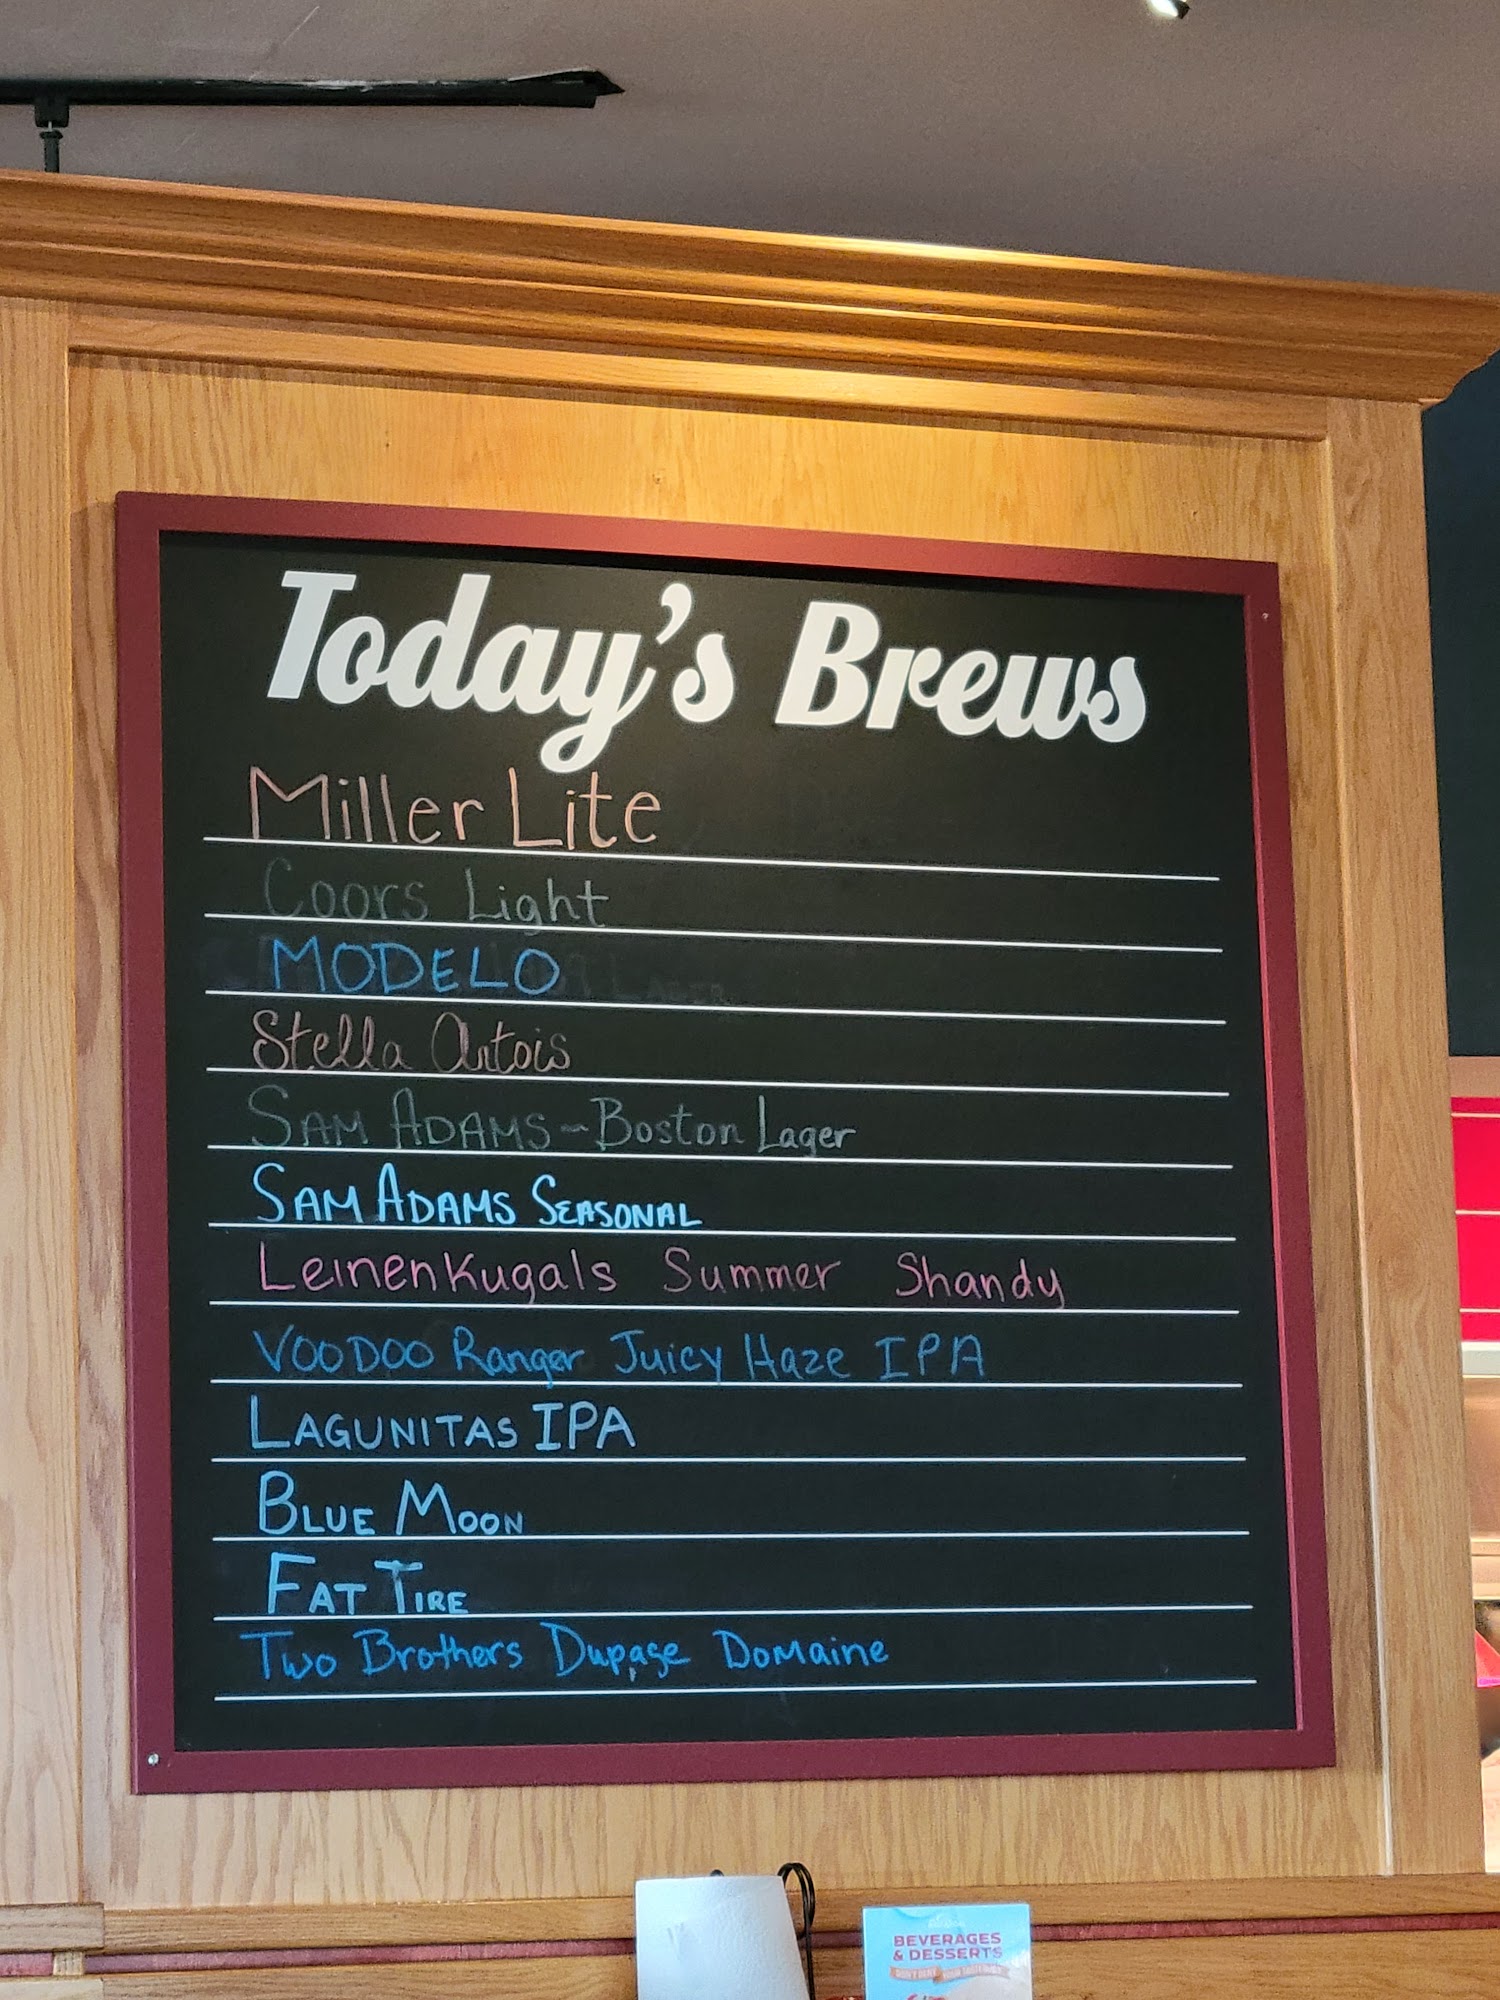 Today's Brews
Miller Lite
Coors Light
MODELO
Stella Artois
SAM ADAMS - Boston Lager
SAM ADAMS SEASONAL
Leinenkugals Summer Shandy
VOODOO Ranger Juicy Haze IPA
LAGUNITAS IPA
BLUE MOON
FAT TIRE
Two Brothers Dupage Domaine
BEVERAGES
& DESSERTS